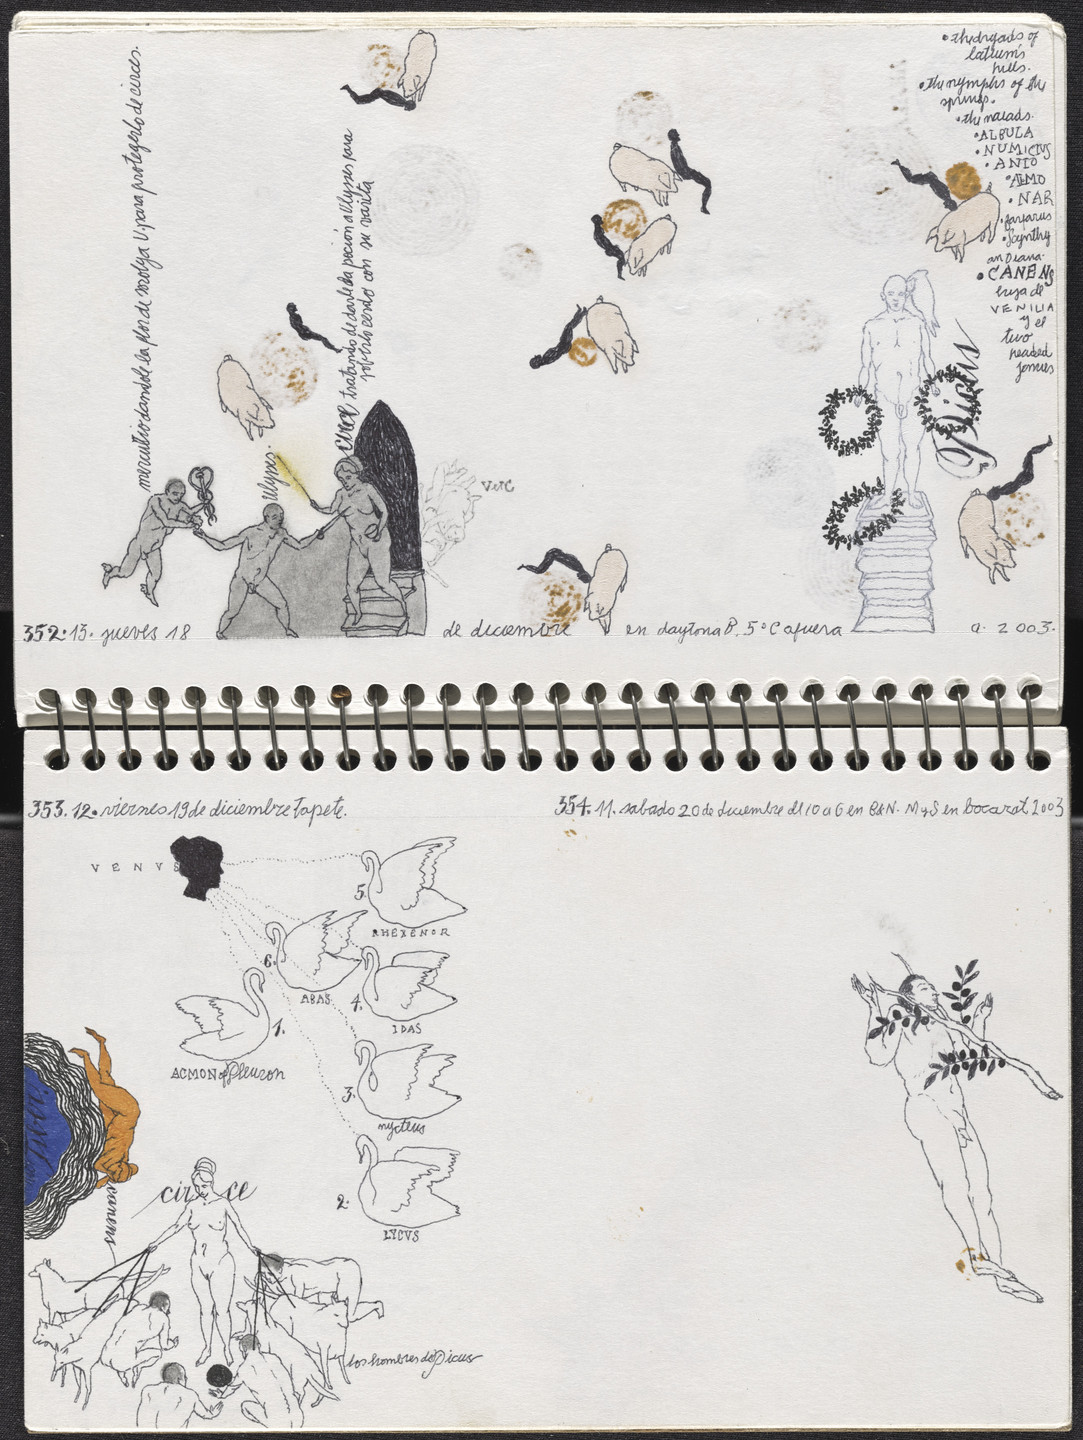 mercurio dandole la flor de molya U. para protegerlo de circes.
circe tratando de darle la poción a Ulysses para
volverlo cerdo con su varita
ulyses.
VWC
• the dryads of
latium's
hills.
• the nymphs of the
springs.
• the naiads.
• ALBULA
• NUMICIUS
• ANIO
• ALMO
• NAR
• farfarus
• Scynthy
an Diana.
• CANENS
hija de
VENILIA
y el
two
headed
janus
Picus
352. 13. jueves 18 de diciembre en daytona B. 5°C afuera a. 2003.
353. 12. viernes 19 de diciembre tapete.
354. 11. sabado 20 de diciembre de 10 a 6 en B&N. M y S en bocarat 2003
VENVS
5.
RHEXENOR
6.
ABAS
4.
IDAS
1.
ACMON of Pleuron
3.
nycteus
2.
LYCVS
circe
los hombres de Picus